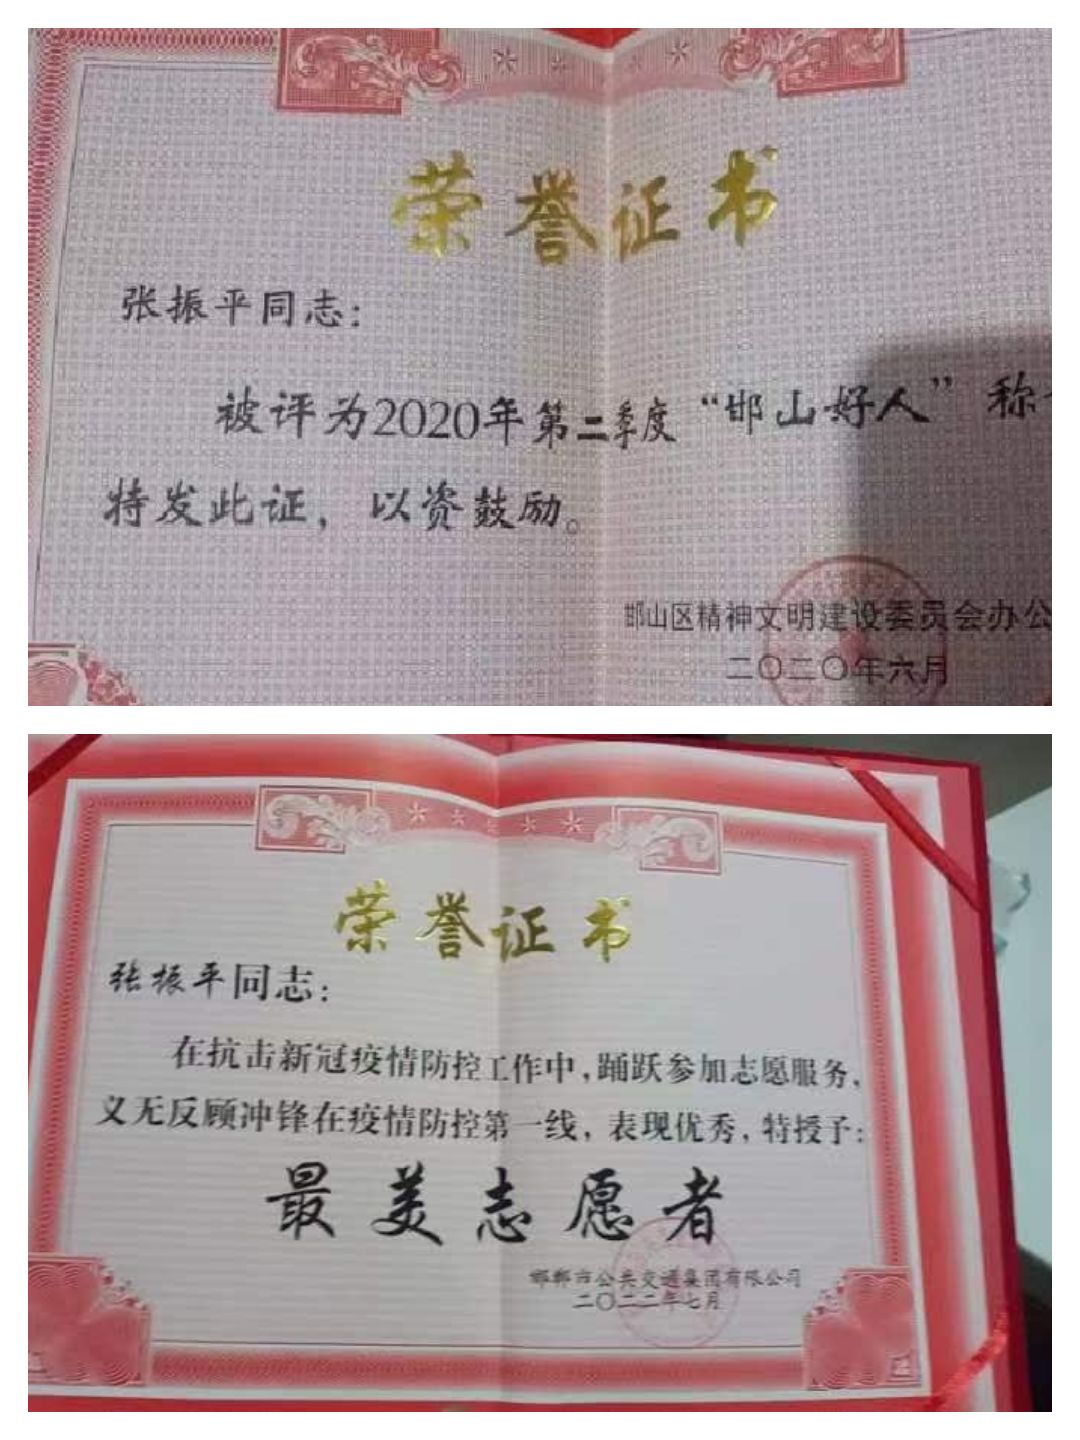 荣誉证书
张振平同志：
被评为2020年第二季度“邯山好人”称
特发此证，以资鼓励。
邯山区精神文明建设委员会办公
二〇二〇年六月
荣誉证书
张振平同志：
在抗击新冠疫情防控工作中，踊跃参加志愿服务，
义无反顾冲锋在疫情防控第一线，表现优秀，特授予：
最美志愿者
邯郸市公共交通集团有限公司
二〇二二年七月